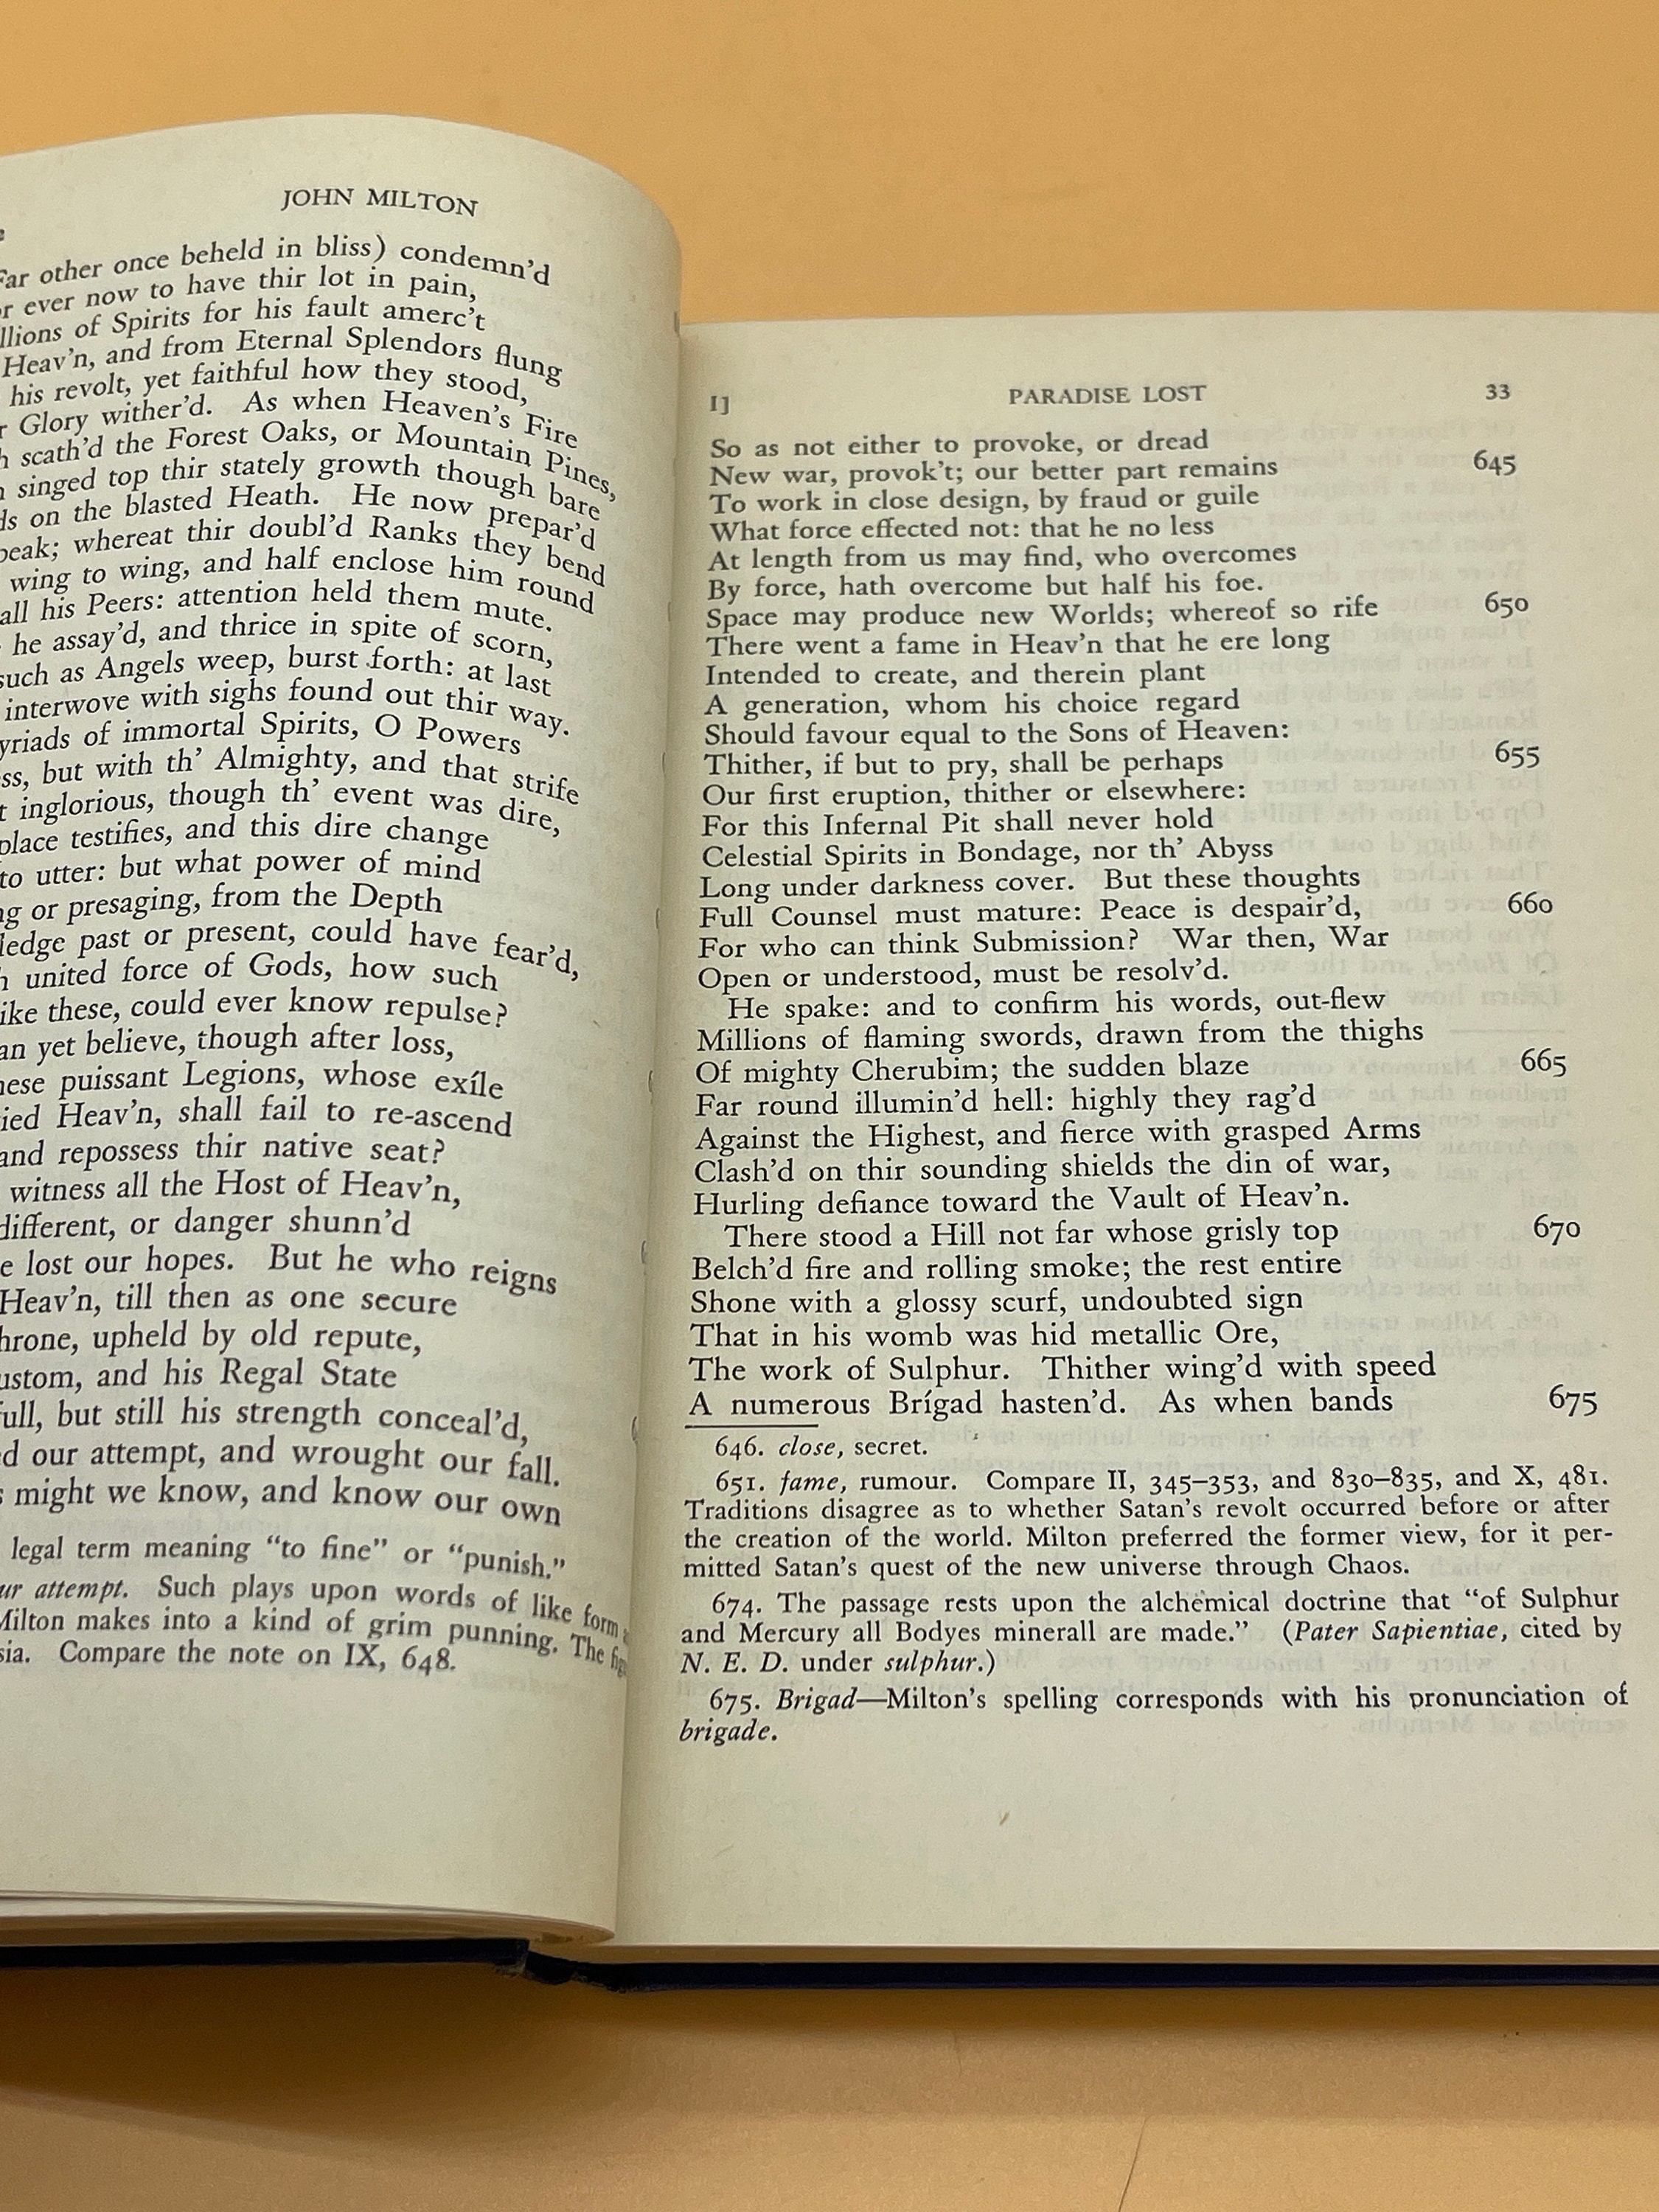 JOHN MILTON
Far other once beheld in bliss) condemn'd
ever now to have thir lot in pain,
of Spirits for his fault amerc't
Heav'n, and from Eternal Splendors flung
his revolt, yet faithful how they stood,
Glory wither'd. As when Heaven's Fire
scath'd the Forest Oaks, or Mountain Pines,
singed top thir stately growth though bare
on the blasted Heath. He now prepar'd
whereat thir doubl'd Ranks they bend
wing to wing, and half enclose him round
all his Peers: attention held them mute.
he assay'd, and thrice in spite of scorn,
such as Angels weep, burst forth: at last
interwove with sighs found out thir way.
of immortal Spirits, O Powers
but with th' Almighty, and that strife
inglorious, though th' event was dire,
place testifies, and this dire change
to utter: but what power of mind
or presaging, from the Depth
past or present, could have fear'd,
united force of Gods, how such
like these, could ever know repulse?
yet believe, though after loss,
these puissant Legions, whose exíle
Heav'n, shall fail to re-ascend
and repossess thir native seat?
witness all the Host of Heav'n,
different, or danger shunn'd
lost our hopes. But he who reigns
Heav'n, till then as one secure
upheld by old repute,
and his Regal State
but still his strength conceal'd,
our attempt, and wrought our fall.
might we know, and know our own
legal term meaning "to fine" or "punish."
attempt. Such plays upon words of like form
Milton makes into a kind of grim punning. The
Compare the note on IX, 648.
I] PARADISE LOST 33
So as not either to provoke, or dread
New war, provok't; our better part remains 645
To work in close design, by fraud or guile
What force effected not: that he no less
At length from us may find, who overcomes
By force, hath overcome but half his foe.
Space may produce new Worlds; whereof so rife 650
There went a fame in Heav'n that he ere long
Intended to create, and therein plant
A generation, whom his choice regard
Should favour equal to the Sons of Heaven:
Thither, if but to pry, shall be perhaps 655
Our first eruption, thither or elsewhere:
For this Infernal Pit shall never hold
Celestial Spirits in Bondage, nor th' Abyss
Long under darkness cover. But these thoughts
Full Counsel must mature: Peace is despair'd, 660
For who can think Submission? War then, War
Open or understood, must be resolv'd.
He spake: and to confirm his words, out-flew
Millions of flaming swords, drawn from the thighs
Of mighty Cherubim; the sudden blaze 665
Far round illumin'd hell: highly they rag'd
Against the Highest, and fierce with grasped Arms
Clash'd on thir sounding shields the din of war,
Hurling defiance toward the Vault of Heav'n.
There stood a Hill not far whose grisly top 670
Belch'd fire and rolling smoke; the rest entire
Shone with a glossy scurf, undoubted sign
That in his womb was hid metallic Ore,
The work of Sulphur. Thither wing'd with speed
A numerous Brígad hasten'd. As when bands 675
646. close, secret.
651. fame, rumour. Compare II, 345–353, and 830–835, and X, 481.
Traditions disagree as to whether Satan's revolt occurred before or after
the creation of the world. Milton preferred the former view, for it per-
mitted Satan's quest of the new universe through Chaos.
674. The passage rests upon the alchemical doctrine that "of Sulphur
and Mercury all Bodyes minerall are made." (Pater Sapientiae, cited by
N. E. D. under sulphur.)
675. Brigad—Milton's spelling corresponds with his pronunciation of
brigade.